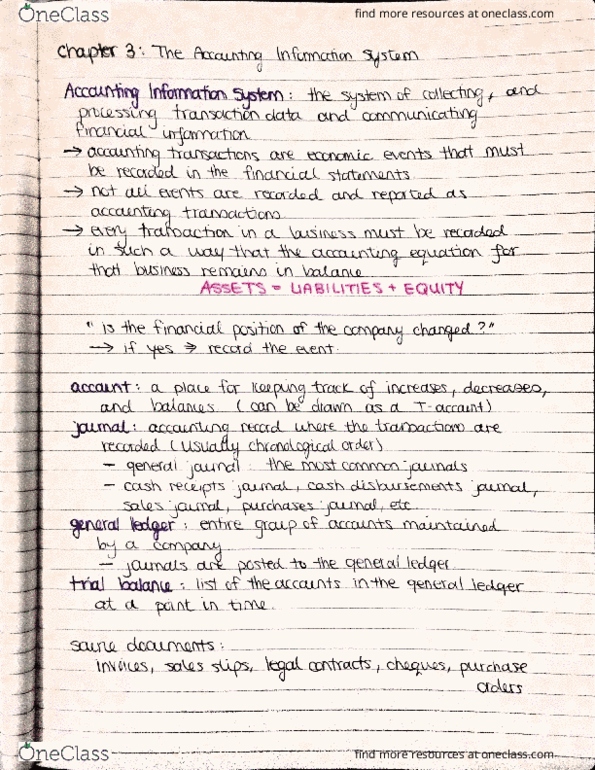 OneClass
find more resources at oneclass.com
Chapter 3: The Accounting Information System
Accounting Information System: the system of collecting, and
processing transaction data and communicating
financial information
→ accounting transactions are economic events that must
be recorded in the financial statements
→ not all events are recorded and reported as
accounting transactions
→ every transaction in a business must be recorded
in such a way that the accounting equation for
that business remains in balance
ASSETS = LIABILITIES + EQUITY
" is the financial position of the company changed?"
→ if yes ⇒ record the event.
account: a place for keeping track of increases, decreases,
and balances (can be drawn as a T-account)
journal: accounting record where the transactions are
recorded (usually chronological order)
- general journal: the most common journals
- cash receipts journal, cash disbursements journal,
sales journal, purchases journal, etc.
general ledger: entire group of accounts maintained
by a company
- journals are posted to the general ledger
trial balance: list of the accounts in the general ledger
at a point in time.
source documents:
invoices, sales slips, legal contracts, cheques, purchase
orders
OneClass
find more resources at oneclass.com